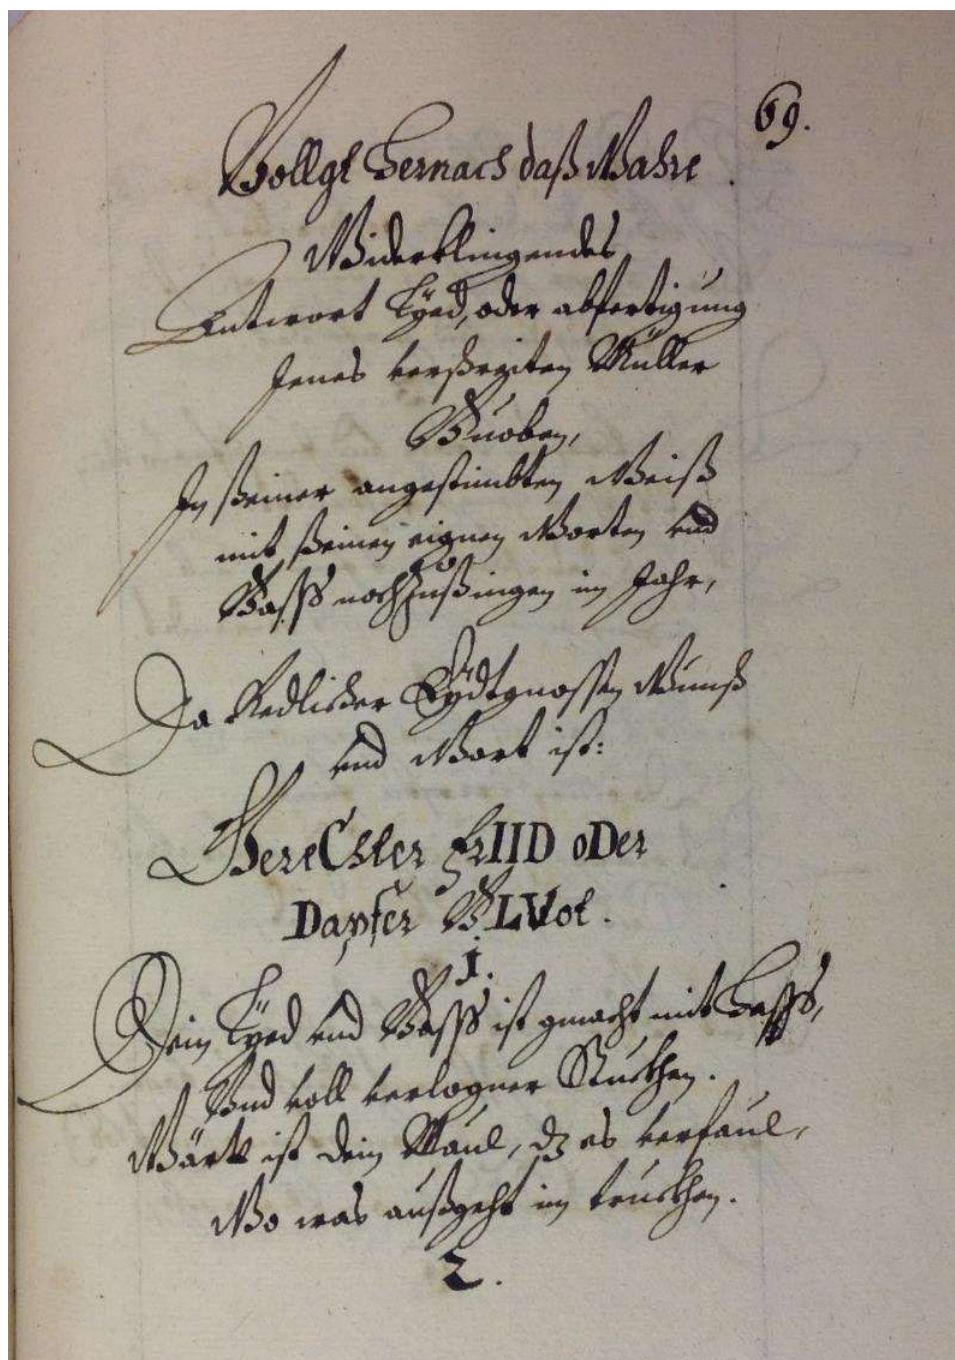 69.
Vollgt hernach daß Wahre
Widerklingendes
Antwort Lÿed, oder abfertigung
Jenes verschreÿten Müller
Buoben,
In seiner angestimbten Weiß
mit seinen eignen Worten vnd
Bass nochzusingen im Jahr,
Da Redlicher Eÿdtgnossen Wunsch
vnd Wort ist:
GereChter frIID oDer
Dapfer BLVot.
1.
Dein Lÿed vnd Bass ist gmacht mit hass,
Vnd voll verlogner Stuckhen.
Wärth ist dein Maul, dz es verfaul,
Wo was außgeht im truckhen.
2.